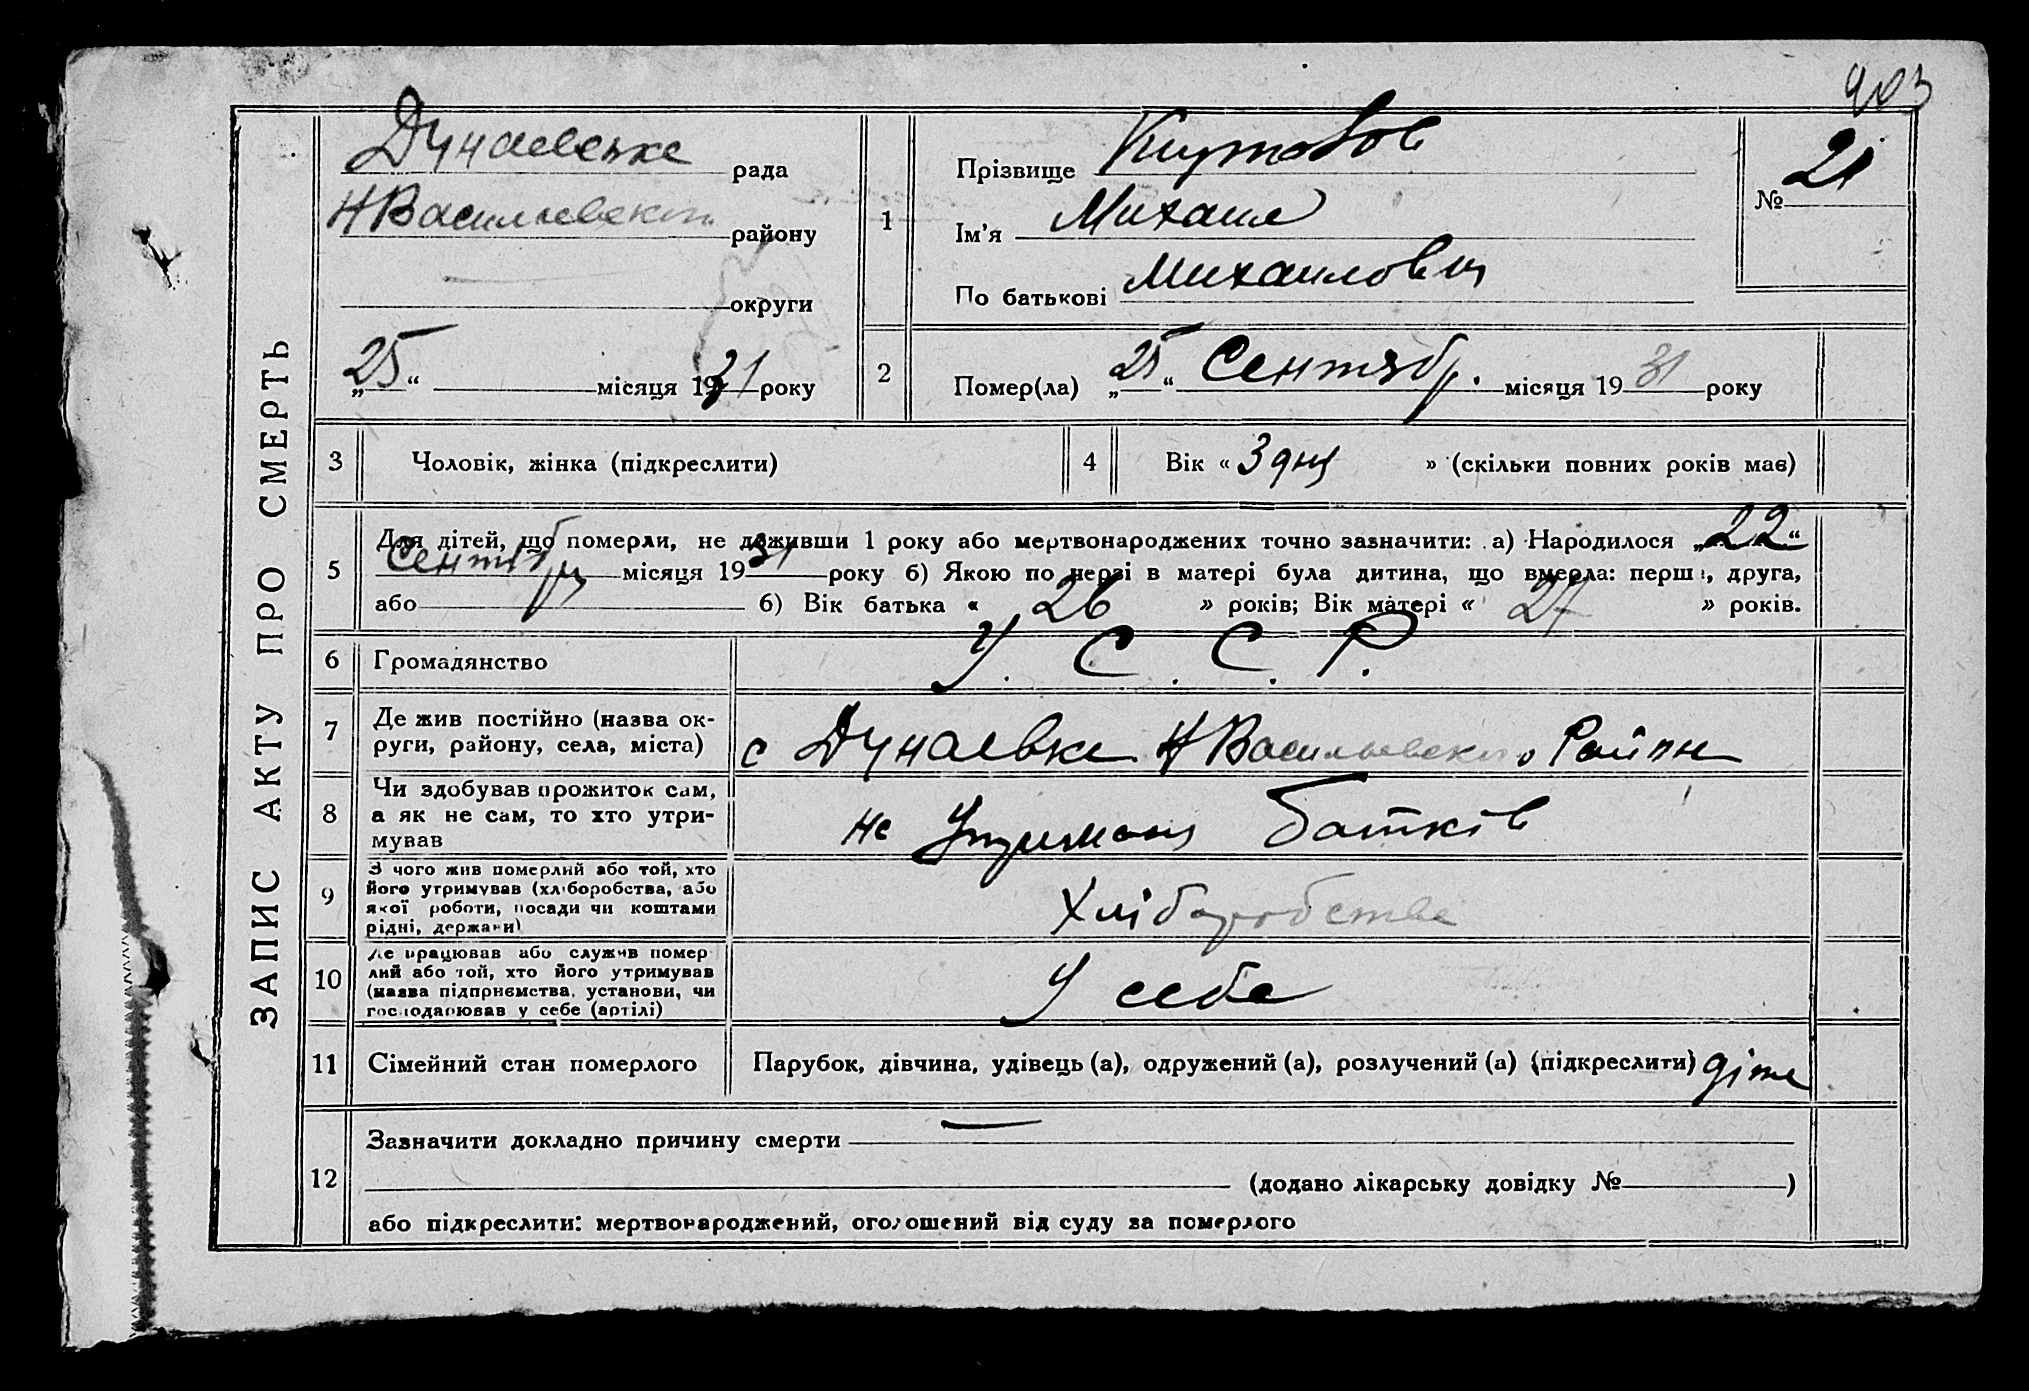 403
ЗАПИС АКТУ ПРО СМЕРТЬ
Дунаевске рада
НВасильевског району
округи
„25“ місяця 1931 року
1
Прізвище Кутовов
Ім'я Михаил
По батькові Михаилович
№ 21
2 Помер(ла) „25“ Сентябр. місяця 1931 року
3 Чоловік, жінка (підкреслити)
4 Вік « 3 дня » (скільки повних років має)
5 Для дітей, що померли, не доживши 1 року або мертвонароджених точно зазначити: а) Народилося „22“
Сентября місяця 1931 року б) Якою по черзі в матері була дитина, що вмерла: перша, друга,
або б) Вік батька « 26 » років; Вік матері « 27 » років.
6 Громадянство У. С. С. Р.
7 Де жив постійно (назва ок-
руги, району, села, міста) с Дунаевке НВасильевского Район
8 Чи здобував прожиток сам,
а як не сам, то хто утри-
мував
не Утримани батків
9 З чого жив померлий або той, хто
його утримував (хліборобства, або
якої роботи, посади чи коштами
рідні, держави)
Хліборобства
10 Де працював або служив помер
лий або той, хто його утримував
(назва підприємства, установи, чи
господарював у себе (артілі)
У себе
11 Сімейний стан померлого Парубок, дівчина, удівець (а), одружений (а), розлучений (а) (підкреслити) діте
12 Зазначити докладно причину смерти —
(додано лікарську довідку № )
або підкреслити: мертвонароджений, оголошений від суду за померлого